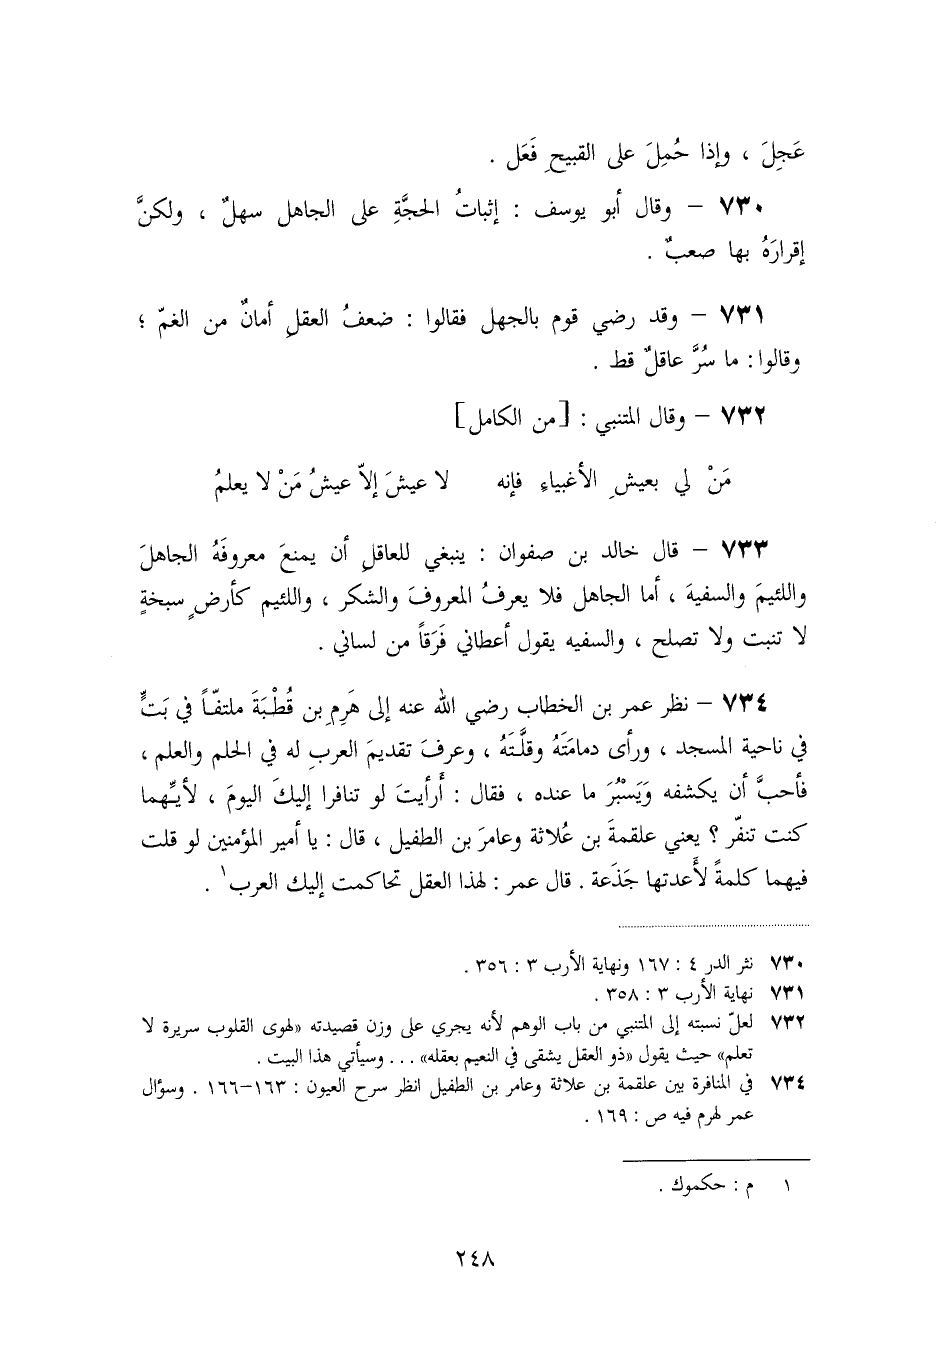 عَجِلَ ، وإذا حُمِلَ على القبيحِ فَعَل .
٧٣٠ – وقال أبو يوسف : إثباتُ الحجَّةِ على الجاهل سهلٌ ، ولكنَّ
إقرارَهُ بها صعبٌ .
٧٣١ – وقد رضي قوم بالجهل فقالوا : ضعفُ العقلِ أمانٌ من الغمّ ؛
وقالوا : ما سُرَّ عاقلٌ قط .
٧٣٢ – وقال المتنبي : [من الكامل]
مَنْ لي بعيشِ الأغبياءِ فإنه لا عيشَ إلاّ عيشُ مَنْ لا يعلمُ
٧٣٣ – قال خالد بن صفوان : ينبغي للعاقلِ أن يمنعَ معروفَهُ الجاهلَ
واللئيمَ والسفيهَ ، أما الجاهل فلا يعرفُ المعروفَ والشكر ، واللئيم كأرضٍ سبخةٍ
لا تنبت ولا تصلح ، والسفيه يقول أعطاني فَرَقاً من لساني .
٧٣٤ – نظر عمر بن الخطاب رضي الله عنه إلى هَرِمِ بن قُطْبَةَ ملتفّاً في بَتٍّ
في ناحية المسجد ، ورأى دمامَتَهُ وقلَّتَهُ ، وعرفَ تقديمَ العربِ له في الحلم والعلم ،
فأحبَّ أن يكشفه وَيَسْبُرَ ما عنده ، فقال : أَرأيتَ لو تنافرا إليكَ اليومَ ، لأيِّهما
كنت تنفّر ؟ يعني علقمةَ بن عُلاثة وعامرَ بن الطفيل ، قال : يا أمير المؤمنين لو قلت
فيهما كلمةً لأَعدتها جَذَعة . قال عمر : لهذا العقل تحاكمت إليك العرب١ .
٧٣٠ نثر الدر ٤ : ١٦٧ ونهاية الأرب ٣ : ٣٥٦ .
٧٣١ نهاية الأرب ٣ : ٣٥٨ .
٧٣٢ لعلّ نسبته إلى المتنبي من باب الوهم لأنه يجري على وزن قصيدته «لهوى القلوب سريرة لا
تعلم» حيث يقول «ذو العقل يشقى في النعيم بعقله» . . . وسيأتي هذا البيت .
٧٣٤ في المنافرة بين علقمة بن علاثة وعامر بن الطفيل انظر سرح العيون : ١٦٣–١٦٦ . وسؤال
عمر لهرم فيه ص : ١٦٩ .
١ م : حكموك .
٢٤٨